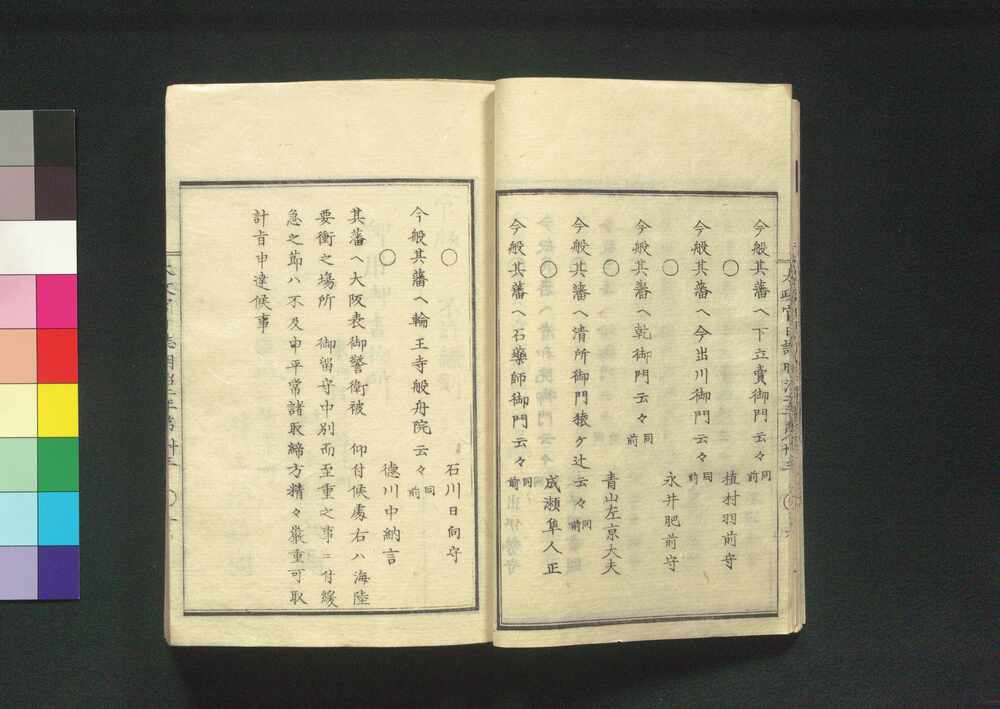 今般其藩ヘ下立賣御門云々同前
〇　植村羽前守
今般其藩ヘ今出川御門云々同前
〇　永井肥前守
今般其藩ヘ乾御門云々同前
〇　青山左京大夫
今般其藩ヘ清所御門猿ケ辻云々同前
〇　成瀬隼人正
今般其藩ヘ石藥師御門云々同前
〇　石川日向守
今般其藩ヘ輪王寺般舟院云々同前
〇　德川中納言
其藩ヘ大阪表御警衛被　仰付候處右ハ海陸
要衝之塲所　御留守中別而至重之事ニ付緩
急之節ハ不及申平常諸取締方精々嚴重可取
計旨申達候事